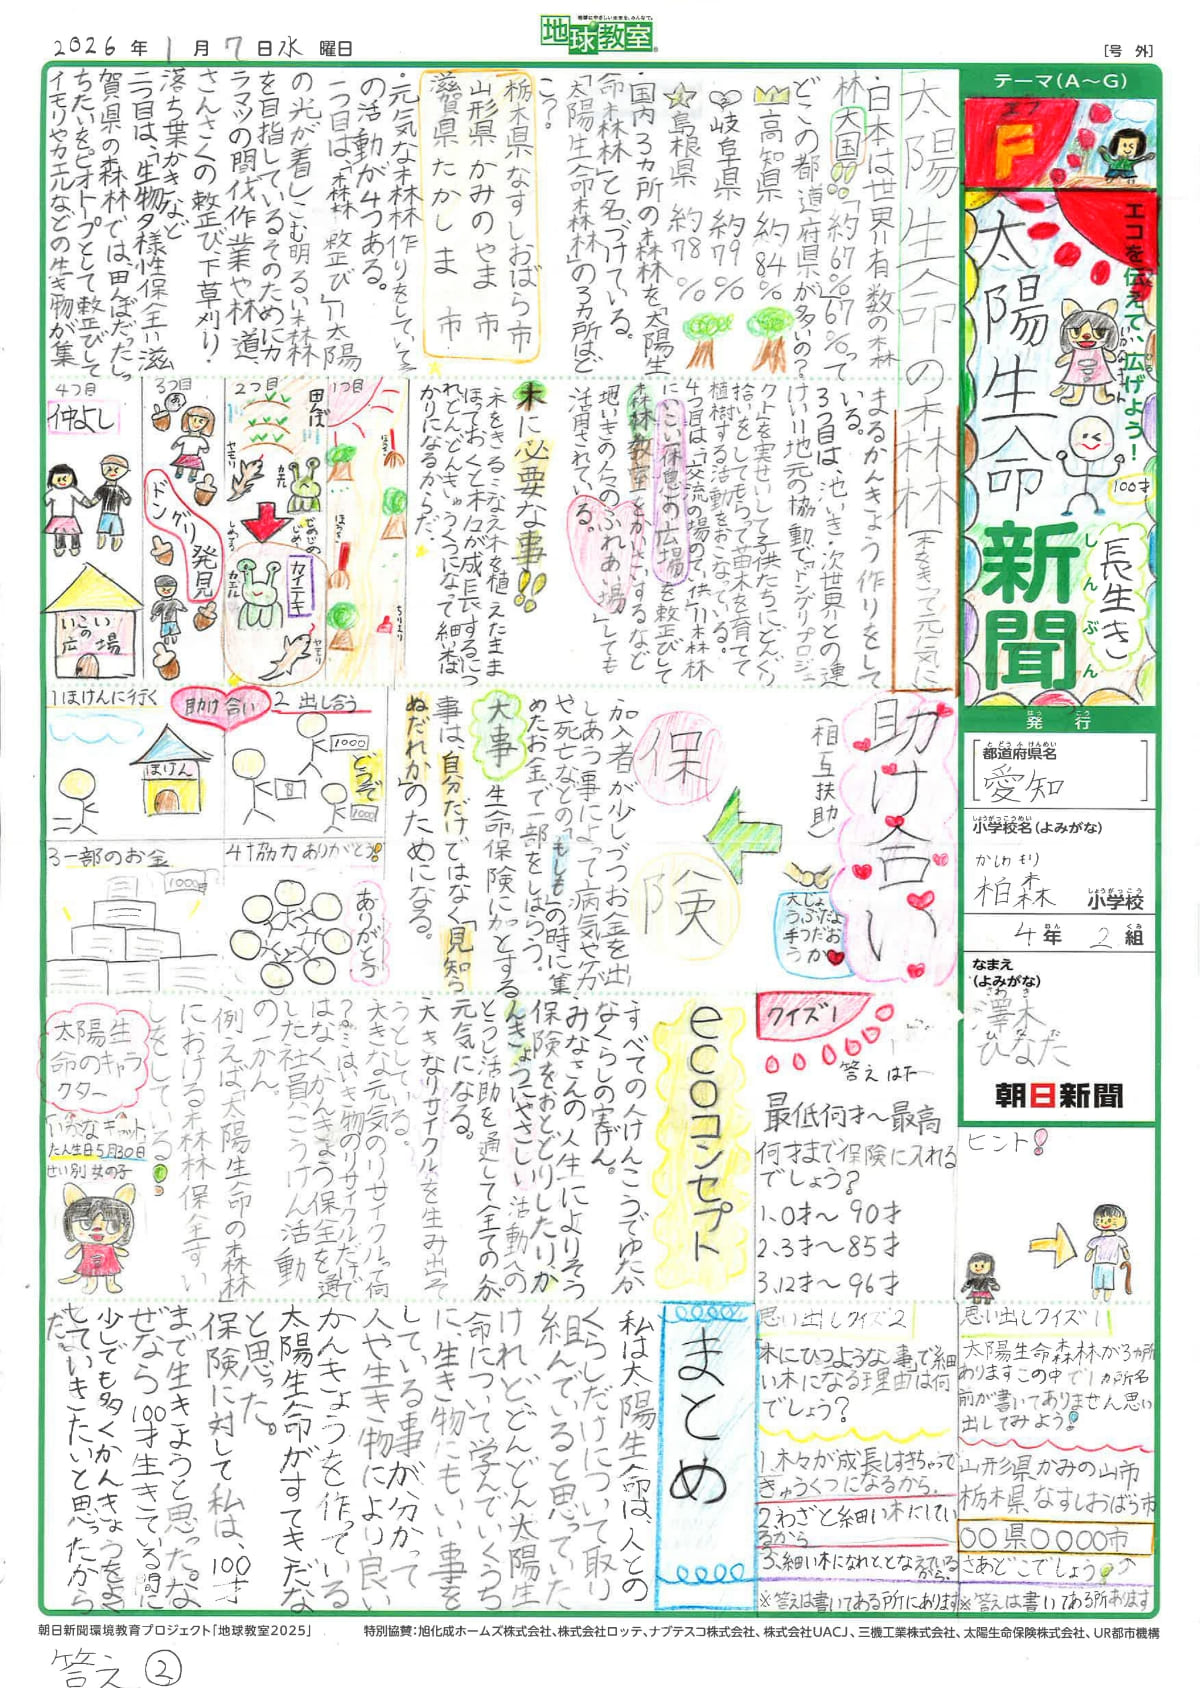 地球にやさしい未来を、みんなで。
地球教室
2026年1月7日水曜日
[号外]
テーマ(A〜G)
エフ
F
エコを伝えて、広げよう！
太陽生命
100才
長生き
新聞
しんぶん
発行
はっこう
都道府県名
とどうふけんめい
愛知
しょうがっこうめい
小学校名(よみがな)
かしわもり
柏森
小学校
しょうがっこう
4年2組
なまえ
(よみがな)
さわき
澤木
ひなた
朝日新聞
太陽生命の森林
(木をきって元気に)
・日本は世界有数の森
林大国!!「約67%」67%って
どこの都道府県が多いの？
高知県 約84%
岐阜県 約79%
島根県 約78%
国内3カ所の森林を「太陽生
命の森林」と名づけている。
「太陽生命の森林」の3カ所はど
こ？
栃木県なすしおばら市
山形県かみのやま市
滋賀県たかしま市
・元気な森林作りをしていて
の活動が4つある。
一つ目は、「森林整び」太陽
の光が着しこむ明るい森林
を目指しているそのためにカ
ラマツの間伐作業や林道、
さんさくの整び、下草刈り・
落ち葉かきなど
二つ目は、「生物多様性保全」滋
賀県の森林では、田んぼだっ
ちたいをビオトープとして整びして
イモリやカエルなどの生き物が集
まるかんきょう作りをして
いる。
3つ目は、地いき・次世界との連
けい」地元の協動で、ドングリプロジェ
クトを実せいして子供たちにどんぐり
拾いをしてもらって苗木を育てて
植樹する活動をおこなっている。
4つ目は「交流の場のて、供」森林
に「いこい休息の広場」を整びして
森林教室をかいさいするなど
地いきの人々のふれあい場としても
活用されている。
木に必要な事!!
木をきる・なえ木を植えたまま
ほっておくと木々が成長するにつ
れ、どんどんきゅうくつになって細木ば
かりになるからだ。
1つ目
2つ目
田んぼ
ヤモリ
カエル
じめじめ
カイテキ
カエル
ヤモリ
3つ目
ドングリ発見
4つ目
仲よし
いこいの広場
助け合い
(相互扶助)
大じょうぶだよ
保険
加入者が少しづつお金を出
しあう事によって病気やケガ
や死亡などの「もしも」の時に集
めたお金で一部をしはらう。
大事
生命保険に加とする
事は、自分だけではなく「見知ら
ぬだれか」のためになる。
助け合い
1ほけんに行く
ほけん
2 出し合う
1000
どうぞ
1000
3一部のお金
1000
4協力ありがとう!
ありがとう
ecoコンセプト
すべての人けんこうでゆたか
なくらしの実げん。
みなさんの人生によりそう
保険をおとどりしたり、か
んきょうにやさしい活動への
とうし活助を通して全ての命
元気になる。
大きなリサイクルを生み出そ
うとしている。
大きな元気のリサイクルって何
？…はいき物のリサイクルだけで
はなくかんきょう保全を通
した社員へこうけん活動
の一かん。
(例えば「太陽生命の森林」
における森林保全すい
しをしている!
太陽生
命のキャラ
クター
たん生日5月30日
せい別 女の子
クイズ1
答えは下
最低何才〜最高
何才まで保険に入れる
でしょう？
1.0才〜90才
2.3才〜85才
3.12才〜96才
ヒント!
まとめ
私は太陽生命は、人との
くらしだけについて取り
組んでいると思っていた
けれどどんどん太陽生
命について学んでいくうち
に、生き物にもいい事を
している事が分かって
人や生き物により良い
かんきょうを作っている
太陽生命がすてきだな
と思った。
保険に対して私は、100才
まで生きようと思った。な
ぜなら100才生きている間に
少しでも多くかんきょうをよき
していきたいと思ったから
だ。
思い出しクイズ2
「木にひつような事」で細
い木になる理由は何
でしょう？
1.木々が成長しすぎちゃって
きゅうくつになるから.
2.わざと細い木にしてい
るから
3.細い木になれととなえている
から.
※答えは書いてある所にあります
思い出しクイズ1
太陽生命森林が3ヵ所
ありますこの中で1ヵ所名
前が書いてありません思い
出してみよう!
山形県かみの山市
栃木県なすしおばら市
○○県○○○○市
さあどこでしょう?
※答えは書いてある所あります
朝日新聞環境教育プロジェクト「地球教室2025」
特別協賛：旭化成ホームズ株式会社、株式会社ロッテ、ナブテスコ株式会社、株式会社UACJ、三機工業株式会社、太陽生命保険株式会社、UR都市機構
答え②